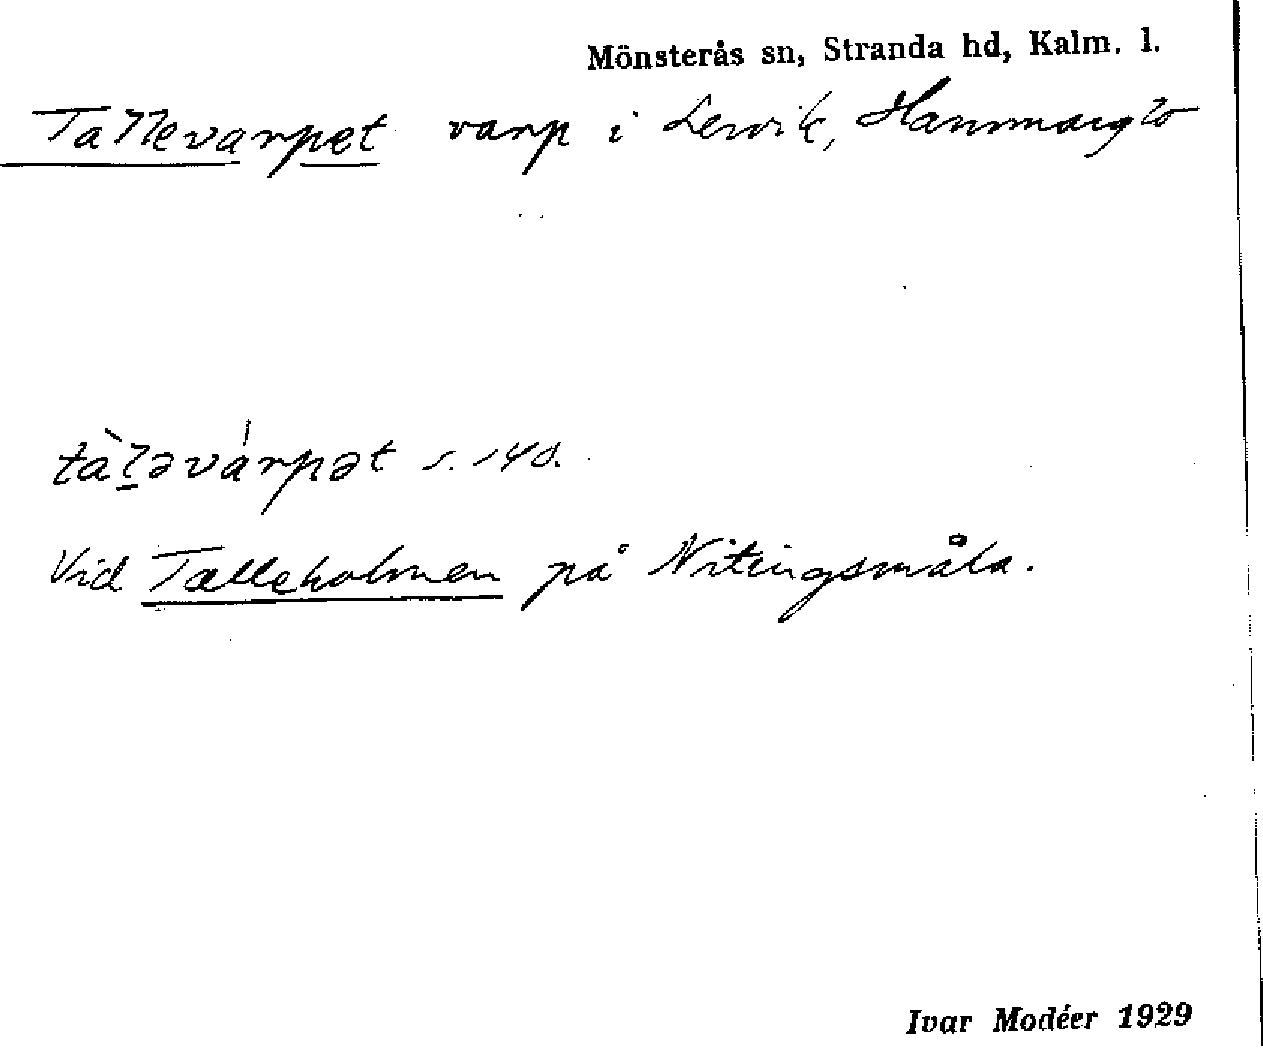 Mönsterås sn, Stranda hd, Kalm. l.
Tallevarpet varp i Lervik, Hammarglo
tàḻəvárpət s. 140.
Vid Talleholmen på Nitingsmåla.
Ivar Modéer 1929